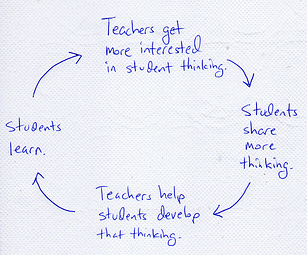 Teachers get
more interested
in student thinking.
Students
share
more
thinking.
Teachers help
students develop
that thinking.
Students
learn.